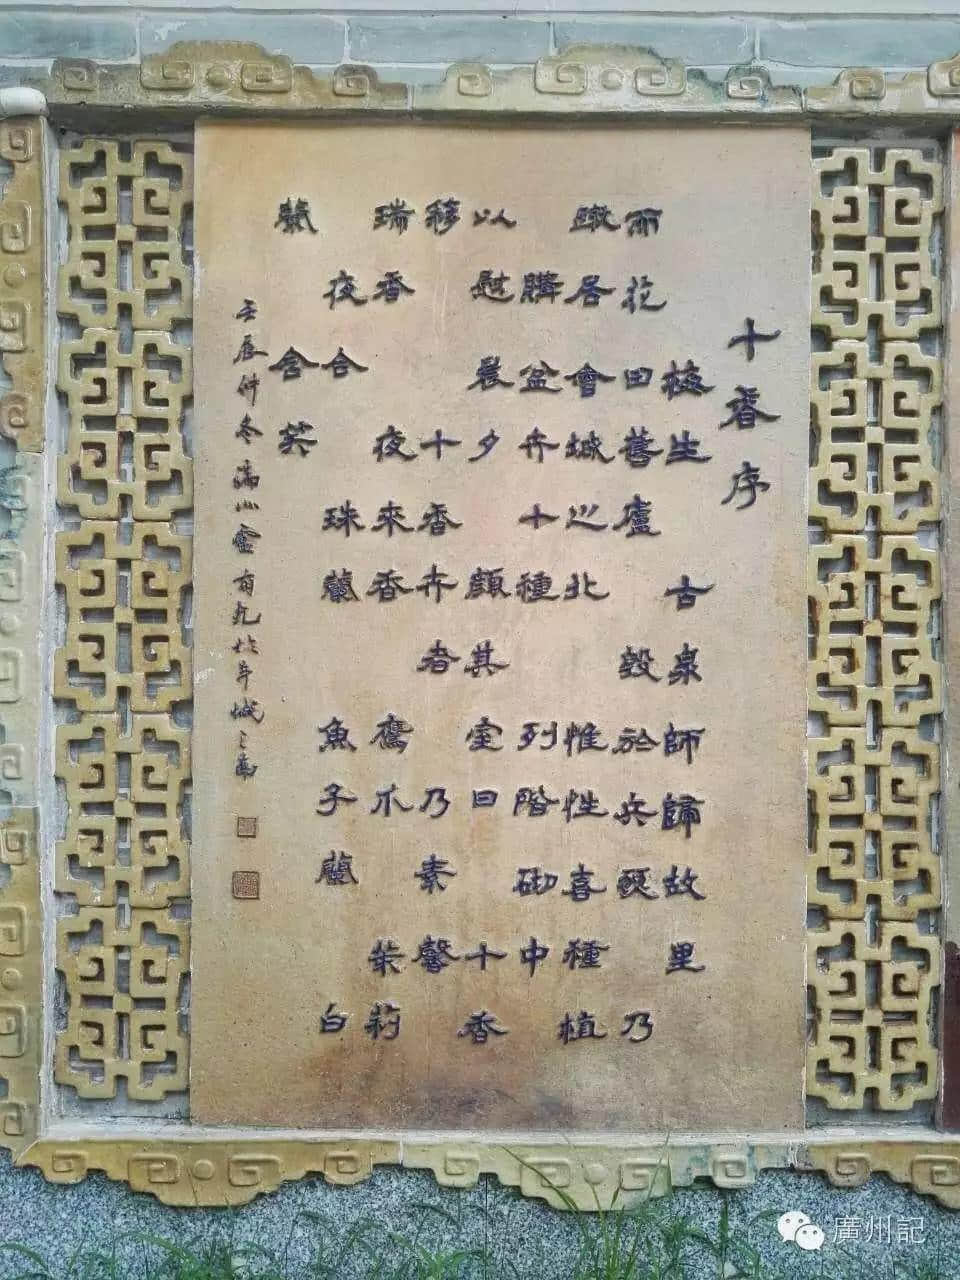 十香序
梅生古泉師歸故里
而花田舊廬毀於兵燹乃
居會城之北惟性喜種植
購盆卉十種列階砌中
以慰晨夕顏其室曰十香
簃十香卉者乃素馨
瑞香夜來香鷹爪茉莉
夜合珠蘭魚子蘭白
蘭含笑
壬辰仲冬於羊城之南
廣州記